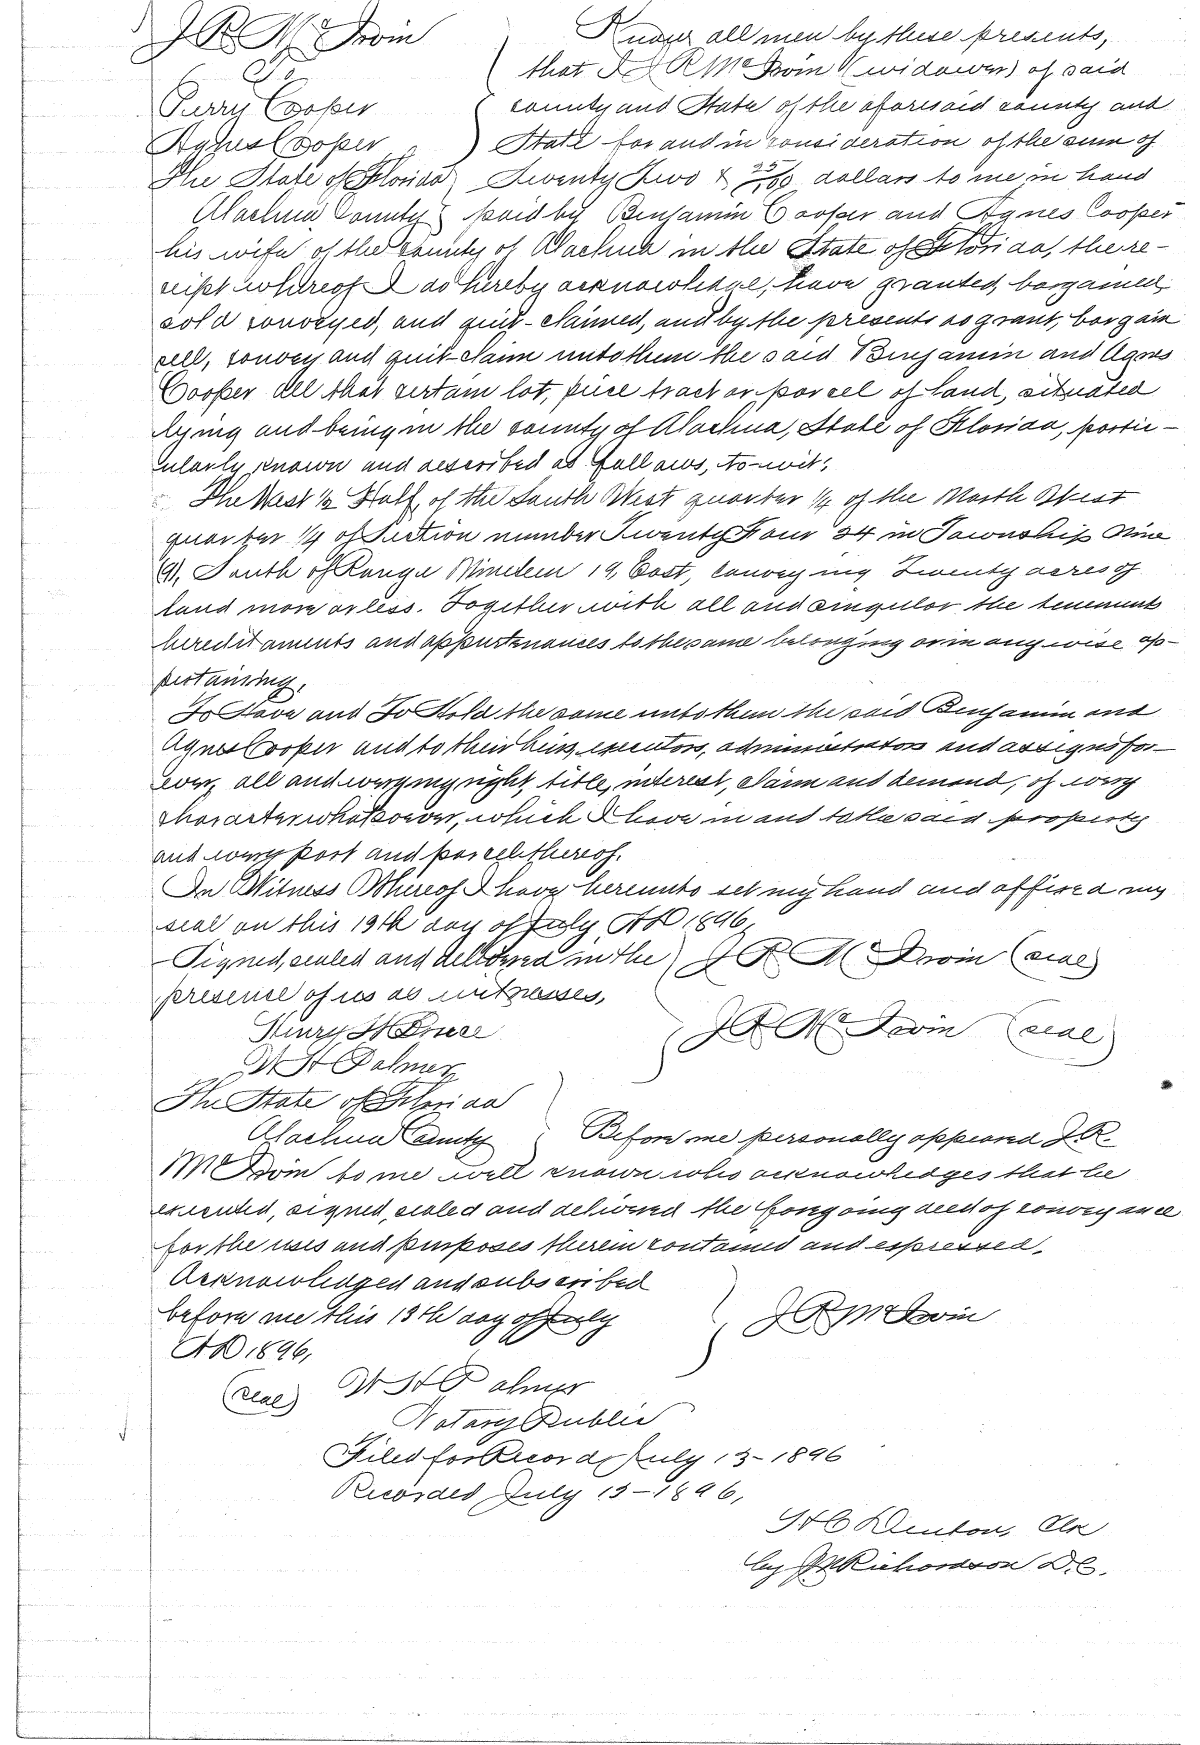 J R McIrvin
To
Perry Cooper
Agnes Cooper
The State of Florida
Alachua County
Know all men by these presents,
that I J R McIrvin (widower) of said
county and State of the aforesaid county and
State for and in consideration of the sum of
Twenty Two & 25/100 dollars to me in hand
paid by Benjamin Cooper and Agnes Cooper
his wife of the county of Alachua in the State of Florida, the re-
ceipt whereof I do hereby acknowledge, have granted, bargained,
sold conveyed, and quit-claimed, and by the presents do grant, bargain
sell, convey and quit-claim unto them the said Benjamin and Agnes
Cooper all that certain lot, piece tract or parcel of land, situated
lying and being in the county of Alachua, State of Florida, partic-
ularly known and described as follows, to-wit:
The West 1/2 Half, of the South West quarter 1/4 of the North West
quarter 1/4 of Section number Twenty Four 24 in Township Nine
(9), South of Range Nineteen 19, East, conveying Twenty acres of
land more or less. Together with all and singular the tenements
hereditaments and appurtenances to the same belonging or in any wise ap-
pertaining,
To Have and To Hold the same unto them the said Benjamin and
Agnes Cooper and to their heirs, executors, administrators and assigns for-
ever, all and every my right, title, interest, claim and demand, of every
character whatsoever, which I have in and to the said property
and every part and parcel thereof.
In Witness Whereof I have hereunto set my hand and affixed my
seal on this 13th day of July AD 1896,
Signed, sealed and delivered in the J R McIrvin (seal)
presence of us as witnesses,
J R McIrvin (seal)
Henry H
W H Palmer
The State of Florida
Alachua County Before me personally appeared J R
McIrvin to me well known who acknowledges that he
executed, signed, sealed and delivered the foregoing deed of conveyance
for the uses and purposes therein contained and expressed.
Acknowledged and subscribed
before me this 13th day of July J R McIrvin
AD 1896,
(seal) W H Palmer
Notary Public
Filed for Record, July 13-1896
Recorded July 15-1896,
H C Denton, Clk
by J M Richardson D.C.